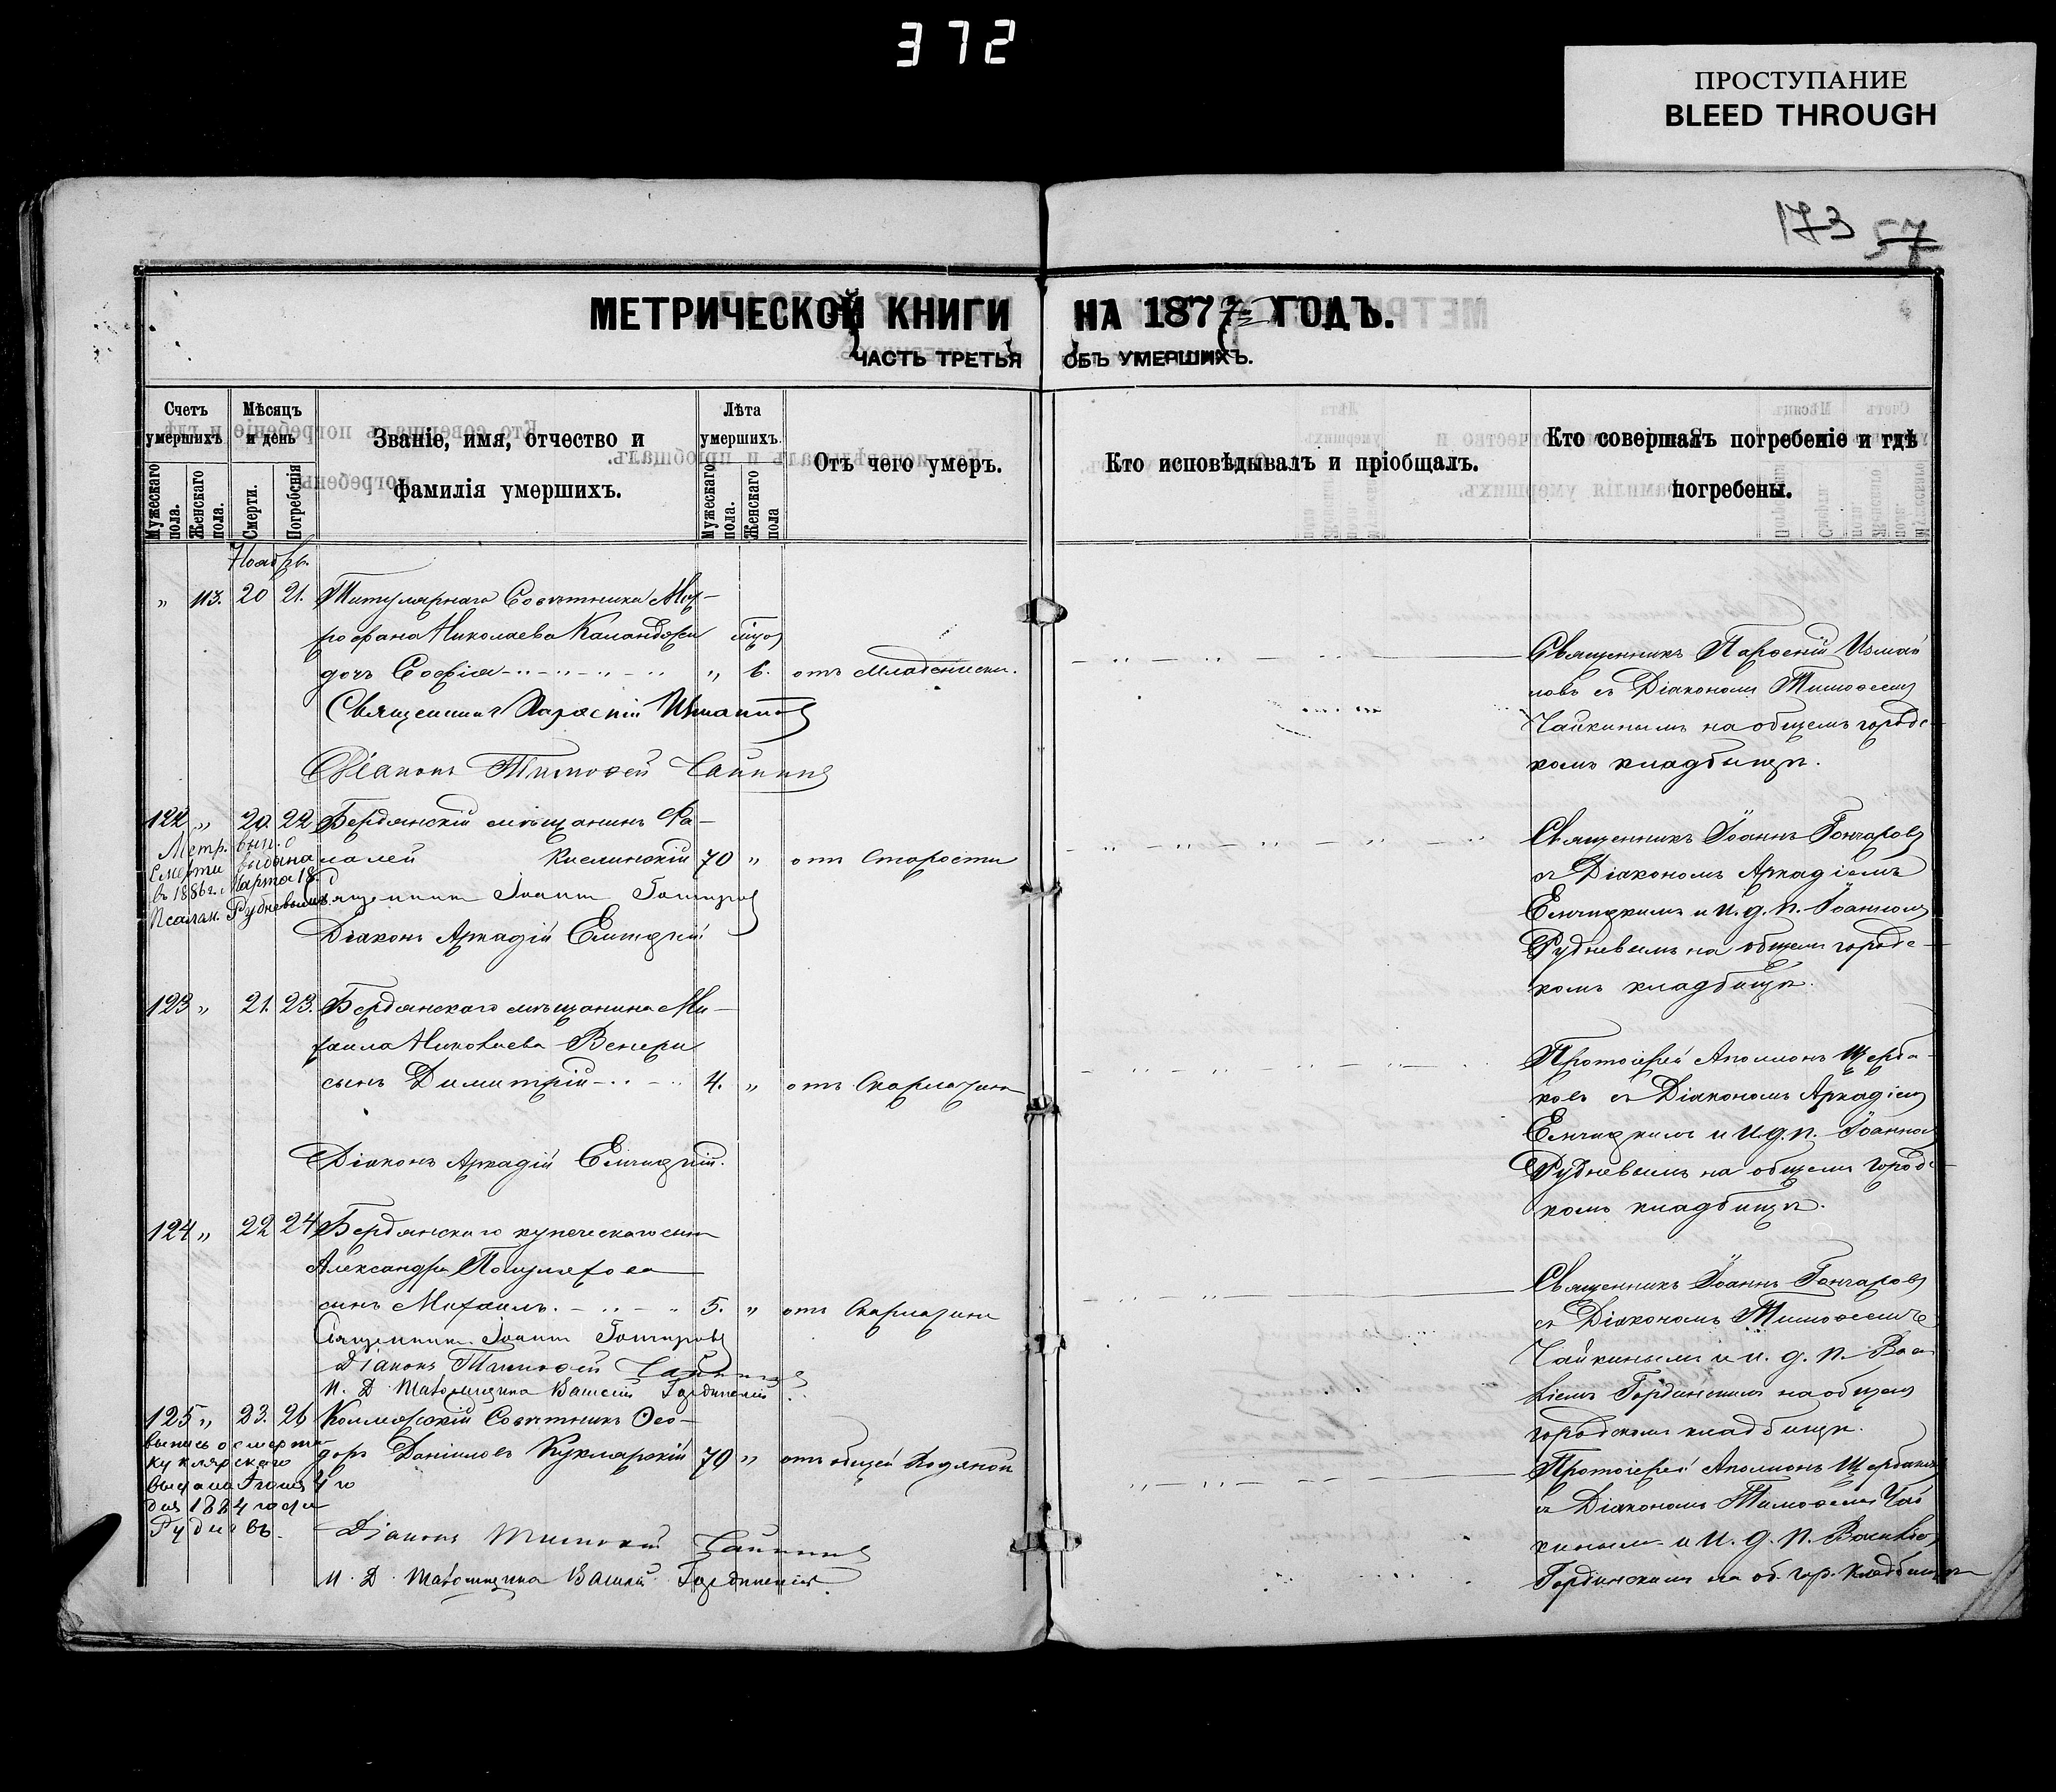 372
ПРОСТУПАНИЕ
BLEED THROUGH
173 57
МЕТРИЧЕСКОЙ КНИГИ НА 1877 ГОДЪ.
ЧАСТЬ ТРЕТЬЯ ОБЪ УМЕРШИХЪ.
Счетъ умершихъ
Мужескаго пола.
Женскаго пола.
Мѣсяцъ и день
Смерти.
Погребенія
Званіе, имя, отчество и фамилія умершихъ.
Лѣта умершихъ.
Мужескаго пола.
Женскаго пола
Отъ чего умеръ.
Кто исповѣдывалъ и пріобщалъ.
Кто совершалъ погребеніе и гдѣ погребены.
Ноябрь
" 113. 20 21. Титулярнаго Совѣтника Мит-
рофана Николаева
дочь Софія " 6. отъ Младенческ.
Священникъ Парѳеній Измаиловъ
Діаконъ Тимоѳей Чайкинъ
Священникъ Парѳеній Измаи
ловъ съ Діакономъ Тимоѳеемъ
Чайкинымъ на общемъ городс-
комъ кладбищѣ.
122 " 20. 22 Бердянскій мѣщанинъ
Кислинскій 70 " отъ Старости
Метр. вып. о
смерти выдана
въ 1886 г. Марта 18.
Псалом. Рудневымъ.
Священникъ Іоаннъ Гончаровъ
Діаконъ Аркадій
Священникъ Іоаннъ Гончаровъ
съ Діакономъ Аркадіемъ
и и. д. п. Іоанномъ
Рудневымъ на общемъ городс-
комъ кладбищѣ.
123 " 21. 23. Бердянскаго мѣщанина Ми-
хаила Николаева Венери
сынъ Димитрій 4. " отъ Скарлатины
Діаконъ Аркадій
Протоіерей Аполлонъ Щерба-
ковъ съ Діакономъ Аркадіемъ
и и. д. п. Іоанномъ
Рудневымъ на общемъ городс-
комъ кладбищѣ.
124 " 22 24 Бердянскаго купеческаго сына
Александра
сынъ Михаилъ. 5. " отъ Скарлатины
Священникъ Іоаннъ Гончаровъ
Діаконъ Тимоѳей Чайкинъ
И. Д. Псаломщика Василій Гординскій
Священникъ Іоаннъ Гончаровъ
съ Діакономъ Тимоѳеемъ
Чайкинымъ и и. д. п. Васи
ліемъ Гординскимъ на общемъ
городскомъ кладбищѣ.
125 " 23. 26 Коллежскій Совѣтникъ Ѳео-
доръ Даніиловъ Куклярскій 70 " отъ общей Водяной
выпись о смерти
Куклярскаго
выдана Іюня 4 го
дня 1884 года
Рудневъ.
Діаконъ Тимоѳей Чайкинъ
И. Д. Псаломщика Василій Гординскій
Протоіерей Аполлонъ Щербаковъ
съ Діакономъ Тимоѳеемъ Чай
кинымъ и и. д. п. Василіемъ
Гординскимъ на об. гор. кладбищѣ